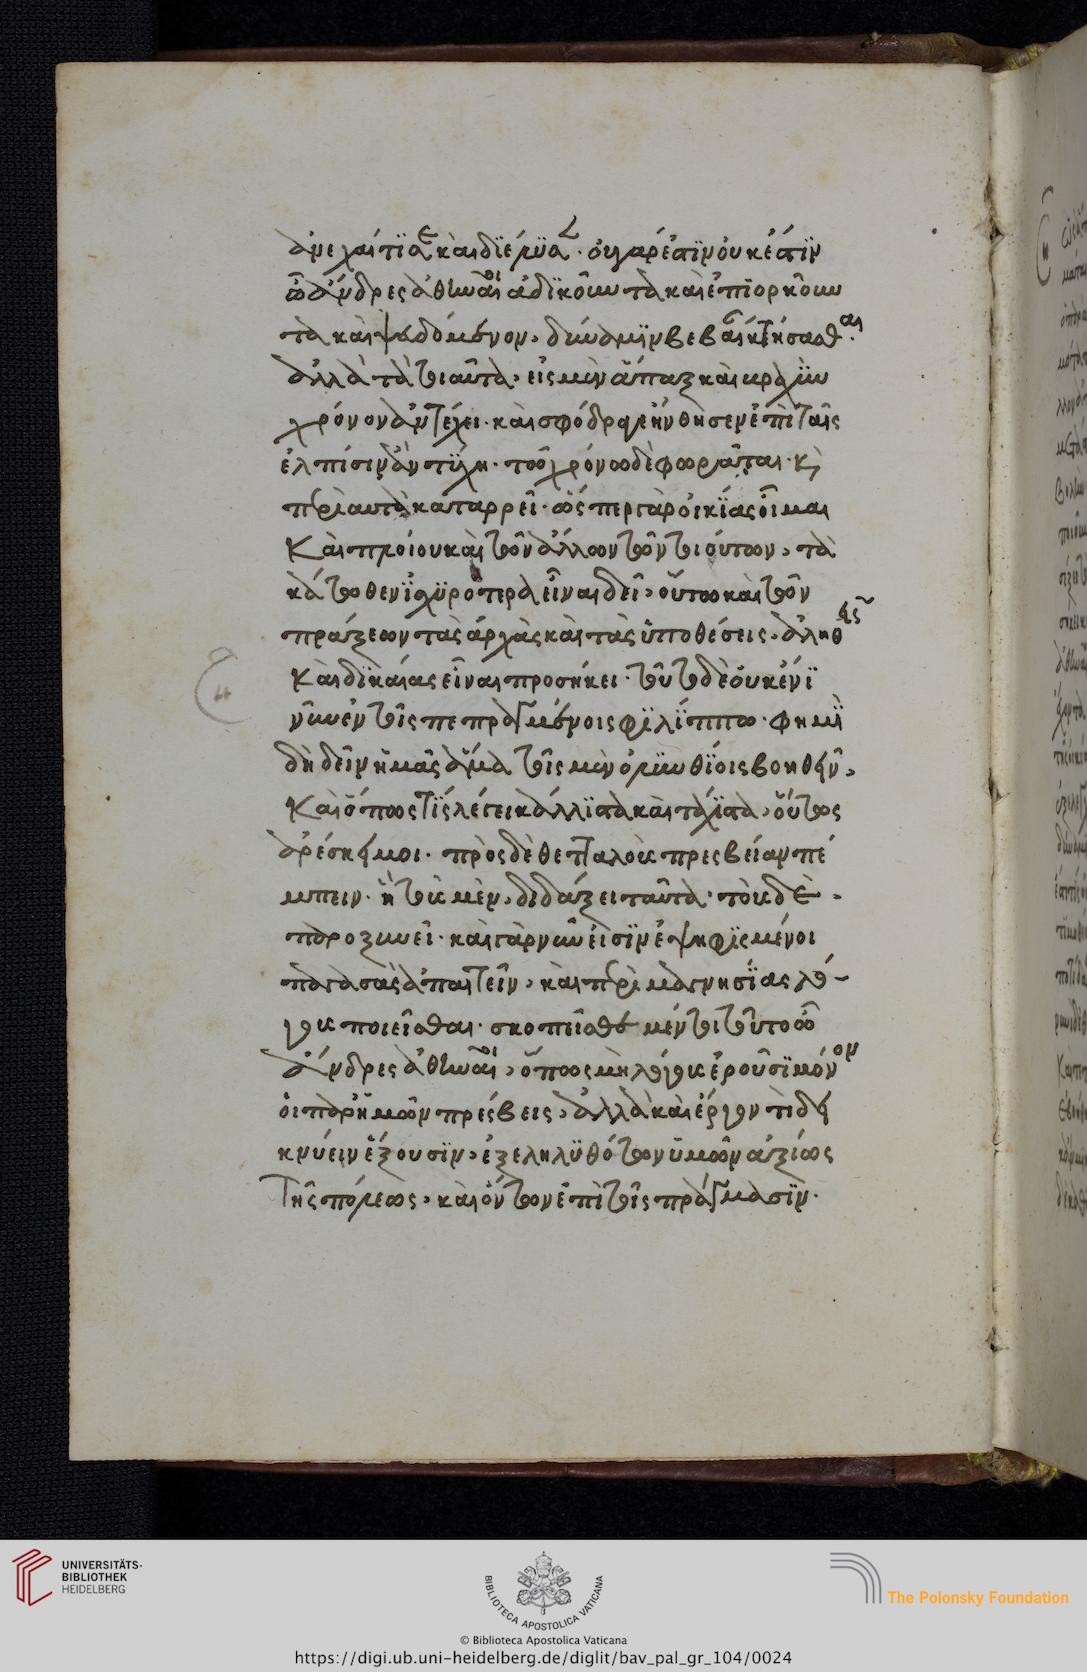 ἀνεχαίτισε καὶ διέλυσεν. οὐ γάρ ἐστιν οὐκ ἔστιν
ὦ ἄνδρες ἀθηναῖοι ἀδικοῦντα καὶ ἐπιορκοῦντα
τα καὶ ψευδόμενον, δύναμιν βεβαίαν κτήσασθαι.
ἀλλὰ τὰ τοιαῦτα, εἰς μὲν ἅπαξ καὶ βραχὺν
χρόνον ἀντέχει. καὶ σφόδρα γε ἤνθησεν ἐπὶ ταῖς
ἐλπίσιν ἂν τύχῃ. τῶ χρόνω δὲ φωρᾶται. κ
περὶ αυτὰ καταρρεῖ. ὥσπερ γὰρ οἰκίας οἶμαι
Καὶ πλοίου καὶ τῶν ἄλλων τῶν τοιούτων, τὰ
κάτωθεν ἰσχυρότερα εἶναι δεῖ, οὕτω καὶ τῶν
πράξεων τὰς ἀρχὰς καὶ τὰς ὑποθέσεις, ἀληθεῖς
Καὶ δικαίας εἶναι προσήκει. τοῦτο δὲ οὐκ ἔνι
νῦν ἐν τοῖς πεπραγμένοις φιλίππω. φημὶ
δὴ δεῖν ἡμᾶς ἅμα τοῖς μὲν ὀλυνθίοις βοηθεῖν,
Καὶ ὅπως τίς λέγει κάλλιστα καὶ τάχιστα, οὕτως
ἀρέσκει μοι. πρὸς δὲ θετταλοὺς πρεσβείαν πέ
μπειν. ἣ τοὺς μὲν, διδάξει ταῦτα. τοὺς δὲ,
παροξυνεῖ. καὶ γὰρ νῦν εἰσὶν ἐψηφισμένοι
παγασὰς ἀπαιτεῖν, καὶ περὶ μαγνησίας λό-
γους ποιεῖσθαι. σκοπεῖσθε μέντοι τοῦτο ὦ
ἄνδρες ἀθηναῖοι, ὅπως μὴ λόγους ἐροῦσι μόνον
οἱ παρ' ἡμῶν πρέσβεις, ἀλλὰ καὶ ἔργον τι δει
κνύειν ἕξουσιν, ἐξεληλυθότων ὑμῶν ἀξίως
τῆς πόλεως, καὶ ὄντων ἐπὶ τοῖς πράγμασιν.
UNIVERSITÄTS-
BIBLIOTHEK
HEIDELBERG
BIBLIOTECA APOSTOLICA VATICANA
The Polonsky Foundation
© Biblioteca Apostolica Vaticana
https://digi.ub.uni-heidelberg.de/diglit/bav_pal_gr_104/0024